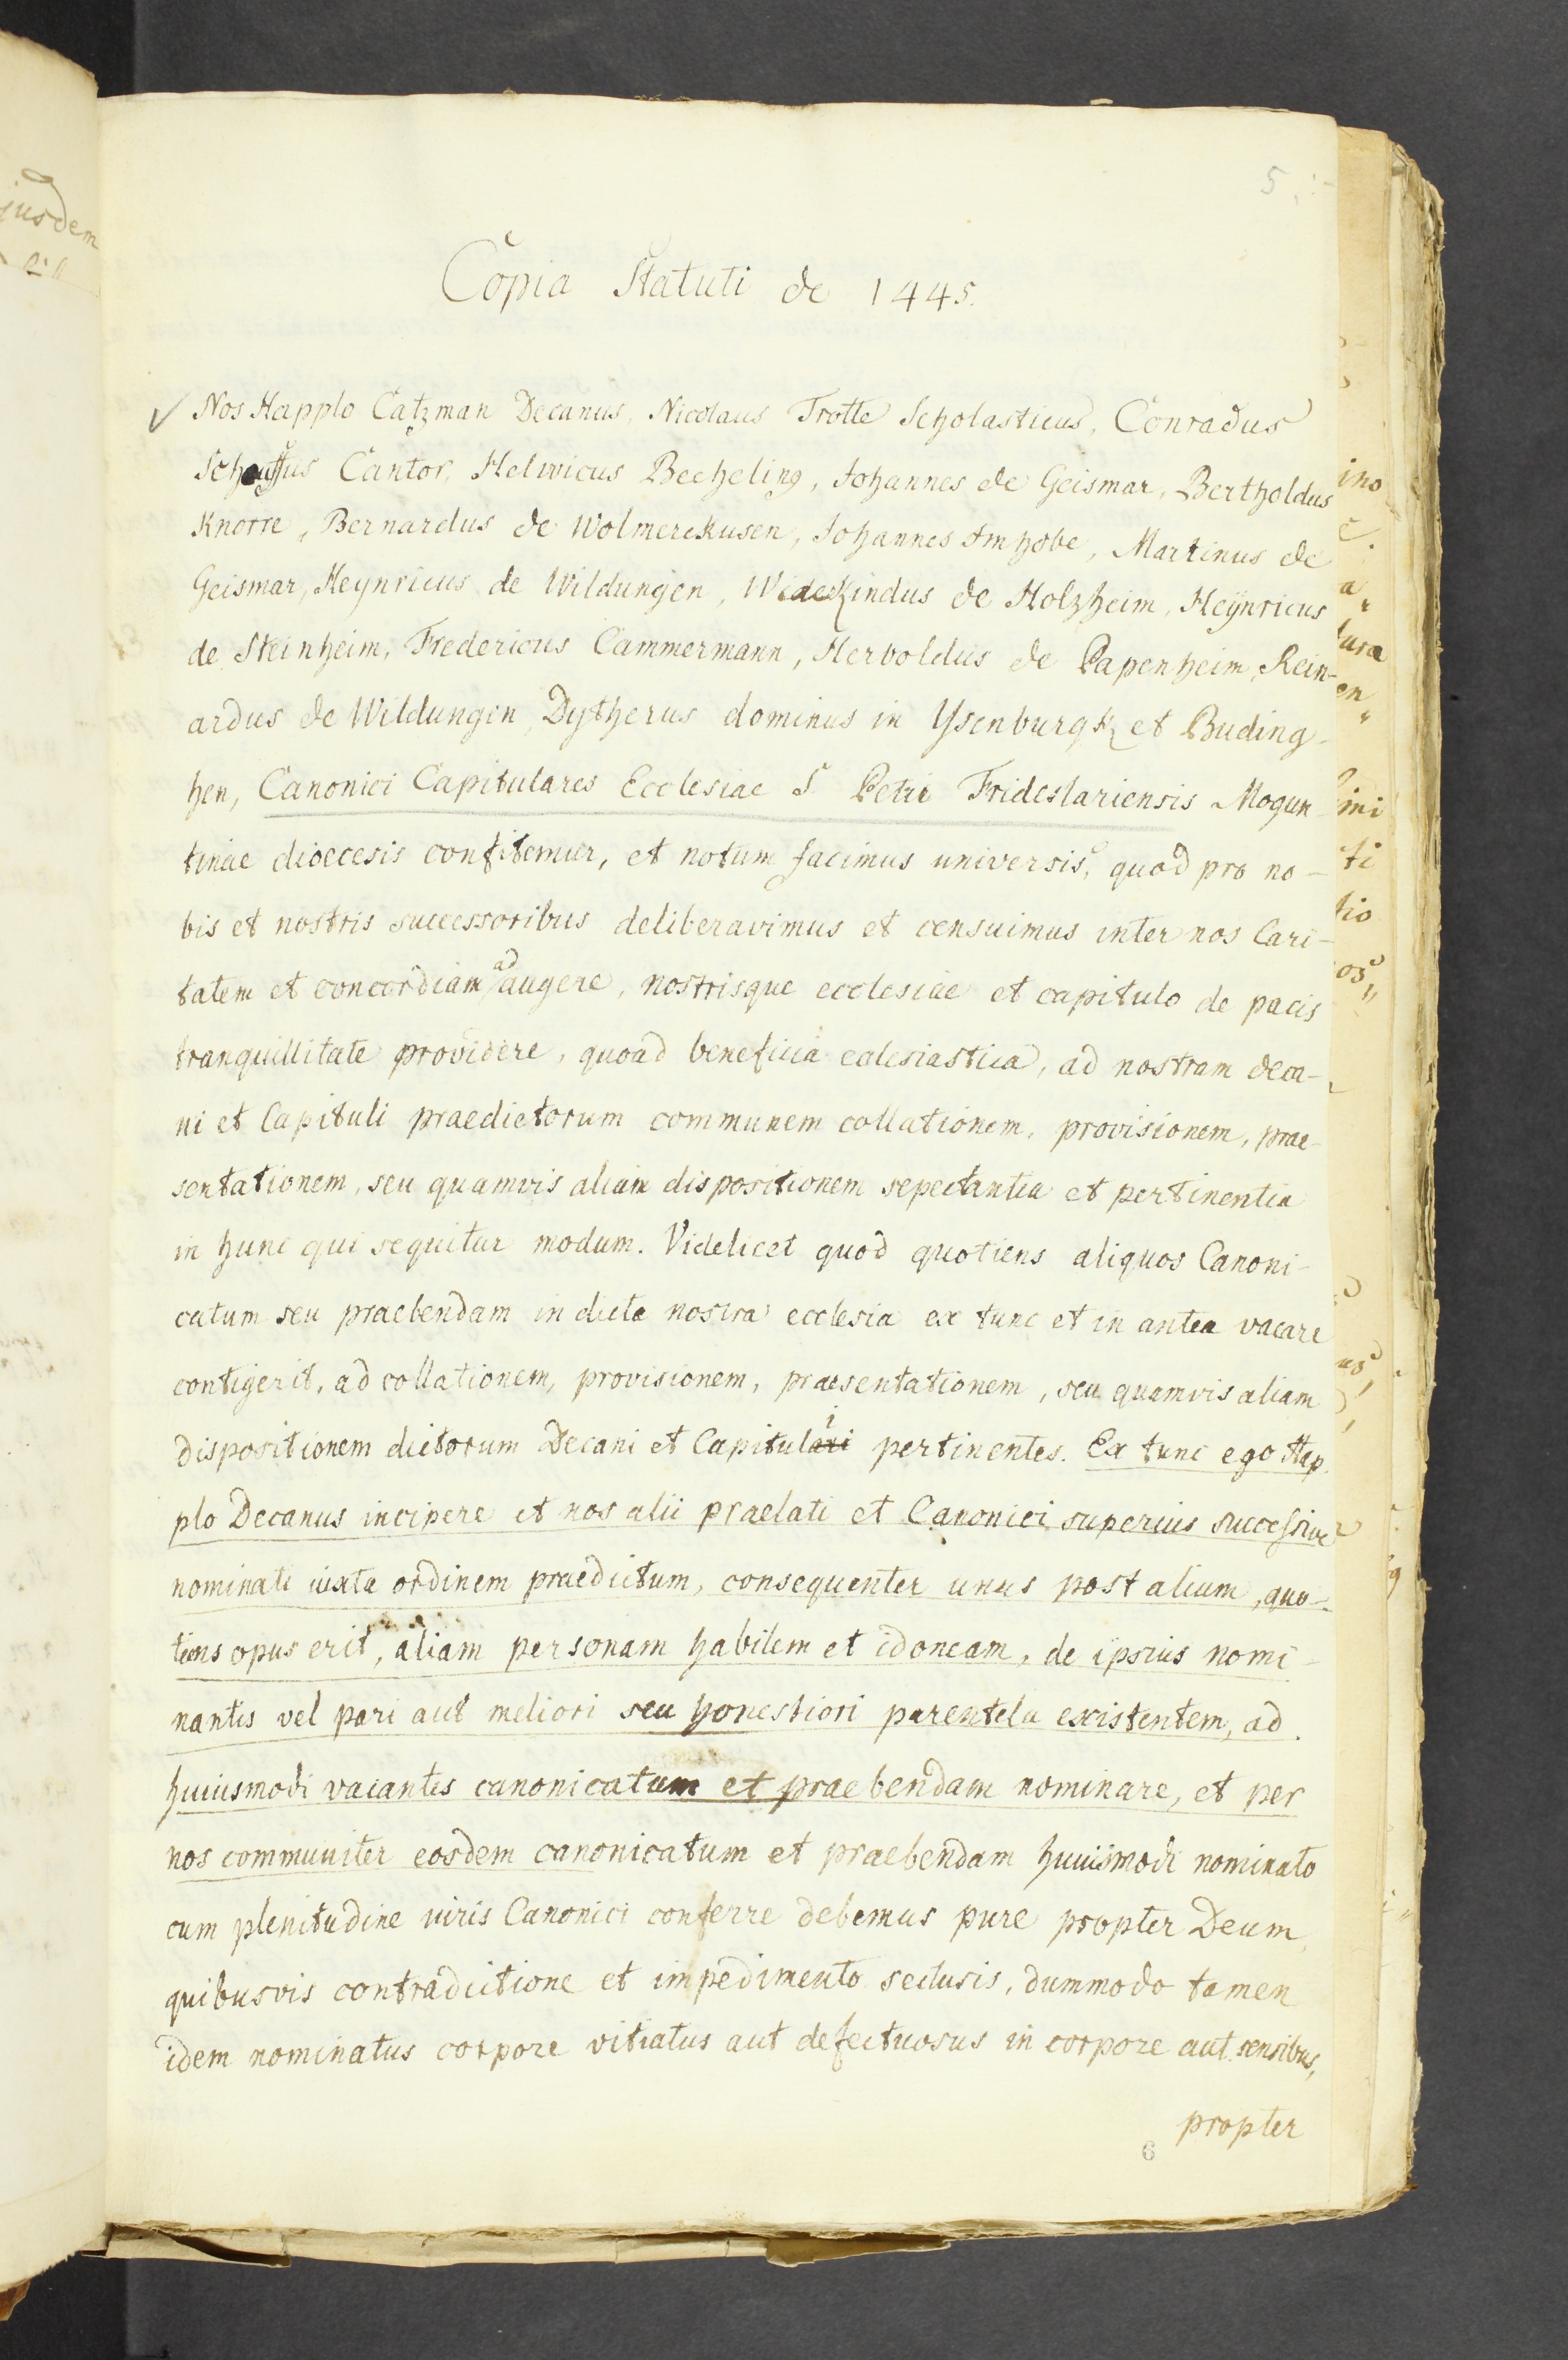 5.
Copia Statuti de 1445.
Nos Happlo Catzman Decanus, Nicolaus Trotte Scholasticus, Conradus
Cantor, Helwicus Becheling, Johannes de Geismar, Bertholdus
Knorre, Bernardus de Wolmerckusen, Johannes Imhobe, Martinus de
Geismar, Heynricus de Wildungen, Widekindus de Holzheim, Heÿnricus
de Steinheim, Fredericus Cammermann, Herboldus de Papenheim, Rein-
ardus de Wildungen, Dytherus dominus in Ysenburgk et Buding-
hen, Canonici Capitulares Ecclesiae S Petri Frideslariensis Mogun
tinae dioecesis confitemur, et notum facimus universis, quod pro no-
bis et nostris successoribus deliberavimus et censuimus inter nos Cari-
tatem et concordiam adaugere, nostrisque ecclesiae et capitulo de pacis
tranquillitate providere, quoad beneficia eclesiastica, ad nostram deca-
ni et Capituli praedictorum communem collationem, provisionem, prae-
sentationem, seu quamvis aliam dispositionem sepectantia et pertinentia
in hunc qui sequitur modum. Videlicet quod quotiens aliquos Canoni-
catum seu praebendam in dicta nostra ecclesia ex tunc et in antea vacare
contigerit, ad collationem, provisionem, praesentationem, seu quamvis aliam
dispositionem dictorum Decani et Capituli pertinentes. Ex tunc ego Hap
plo Decanus incipere et nos alii praelati et Canonici superius successive
nominati iuxta ordinem praedictum, consequenter unus post alium, quo-
tiens opus erit, aliam personam habilem et idoneam, de ipsius nomi-
nantis vel pari aut meliori seu honestiori parentela existentem, ad
huiusmodi vacantes canonicatum et praebendam nominare, et per
nos communiter eosdem canonicatum et praebendam huiusmodi nominato
cum plenitudine iuris Canonici conferre debemus pure propter Deum,
quibusvis contradictione et impedimento seclusis, dummodo tamen
idem nominatus corpore vitiatus aut defectuosus in corpore aut sensibus,
propter
6